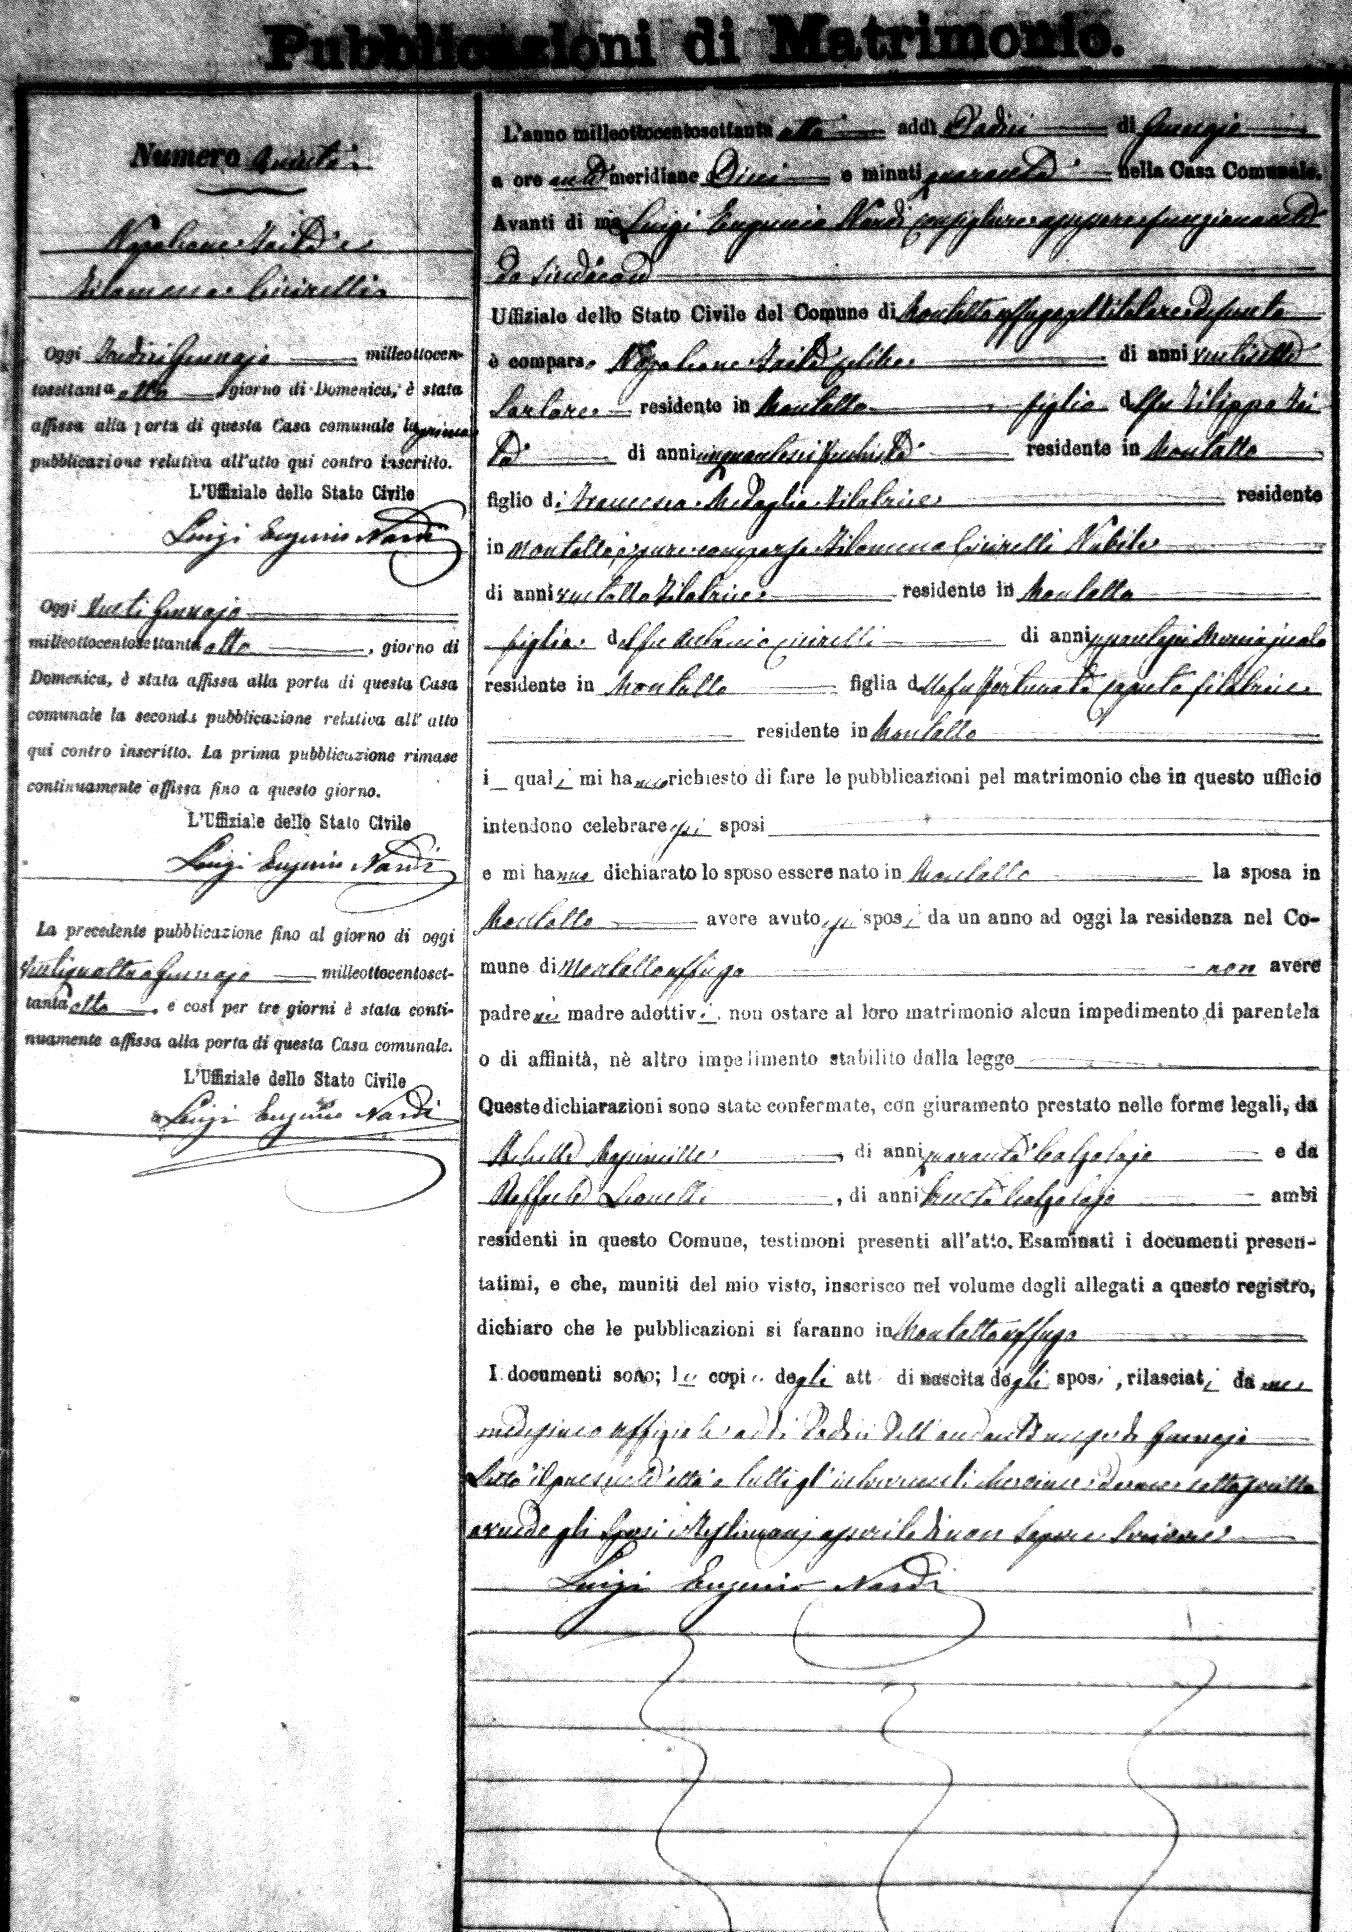 Pubblicazioni di Matrimonio.
Numero
Napoleone Iaità e
Filomena Cicirelli
Oggi Tredici Gennajo milleottocen-
tosettanta otto giorno di Domenica, è stata
affissa alla porta di questa Casa comunale la prima
pubblicazione relativa all'atto qui contro inscritto.
L'Uffiziale dello Stato Civile
Luigi Eugenio Nardi
Oggi Venti Gennajo
milleottocentosettanta otto, giorno di
Domenica, è stata affissa alla porta di questa Casa
comunale la seconda pubblicazione relativa all'atto
qui contro inscritto. La prima pubblicazione rimase
continuamente affissa fino a questo giorno.
L'Uffiziale dello Stato Civile
Luigi Eugenio Nardi
La precedente pubblicazione fino al giorno di oggi
Ventiquattro Gennajo milleottocentoset-
tanta otto, e così per tre giorni è stata conti-
nuamente affissa alla porta di questa Casa comunale.
L'Uffiziale dello Stato Civile
Luigi Eugenio Nardi
L'anno milleottocentosettanta otto addì Dodici di Gennajo
a ore anti meridiane Dieci e minuti quaranta nella Casa Comunale.
Avanti di me Luigi Eugenio Nardi Consigliere assessore funzionante
da Sindaco
Uffiziale dello Stato Civile del Comune di Montalto uffugo pel titolare defunto
è comparso Napoleone Iaità celibe di anni ventisette
Sartore residente in Montalto figlio del fu Filippo Iai
tà di anni residente in Montalto
figlio di Francesca Medaglia filatrice residente
in Montalto, è pure comparsa Filomena Cicirelli Nubile
di anni ventotto Filatrice residente in Montalto
figlia del fu Antonio Cicirelli di anni
residente in Montalto figlia della fu Fortunata Caputo filatrice
residente in Montalto
i quali mi hanno richiesto di fare le pubblicazioni pel matrimonio che in questo ufficio
intendono celebrare essi sposi
e mi hanno dichiarato lo sposo essere nato in Montalto la sposa in
Montalto avere avuto essi sposi da un anno ad oggi la residenza nel Co-
mune di Montalto uffugo non avere
padre nè madre adottivi, non ostare al loro matrimonio alcun impedimento di parentela
o di affinità, nè altro impedimento stabilito dalla legge
Queste dichiarazioni sono state confermate, con giuramento prestato nelle forme legali, da
di anni quaranta Calzolajo e da
Raffaele, di anni trenta Calzolajo ambi
residenti in questo Comune, testimoni presenti all'atto. Esaminati i documenti presen-
tatimi, e che, muniti del mio visto, inserisco nel volume degli allegati a questo registro,
dichiaro che le pubblicazioni si faranno in Montalto uffugo
I documenti sono; le copie degli atti di nascita degli sposi, rilasciati da me
medesimo uffiziale addì Dodici dell'andante mese di Gennajo
Letto il presente atto a tutti gl'intervenuti sottoscritto
avendo gli Sposi e testimonj asserito di non sapere Scrivere
Luigi Eugenio Nardi